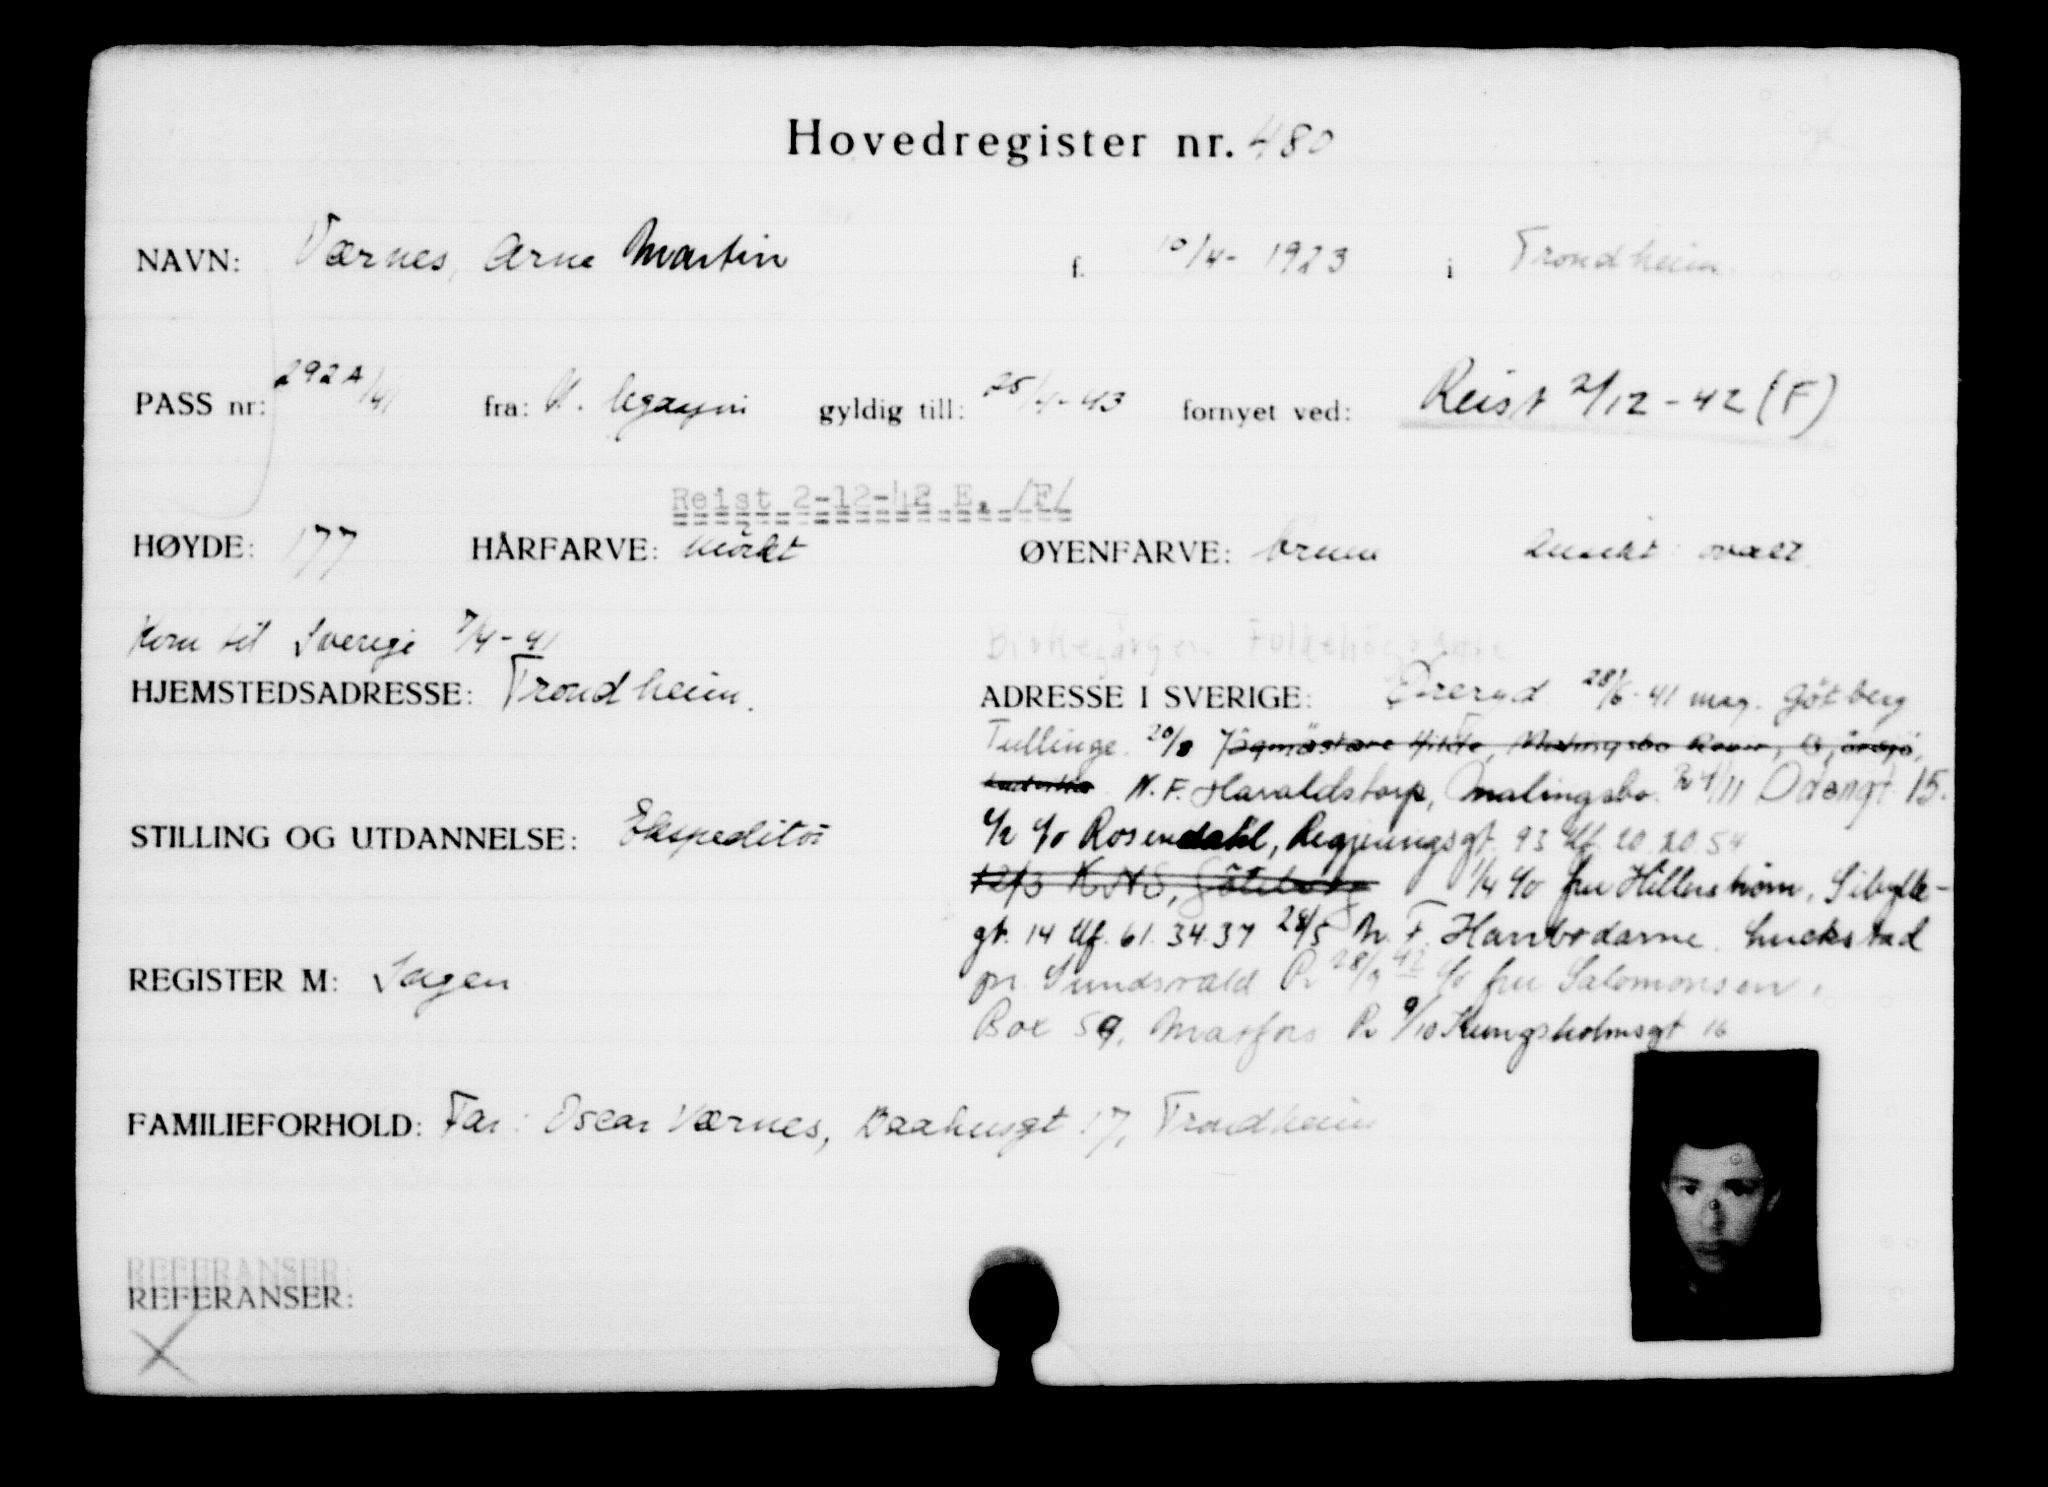 Hovedregister nr. 480
NAVN: Værnes, Arne Martin f. 10/4-1923 i Trondheim
PASS nr: 292A/41 fra: N. legasjon gyldig till: 25/4-43 fornyet ved: Reist 2/12-42 (F)
Reist 2-12-42 E. /F/
HØYDE: 177 HÅRFARVE: mörkt ØYENFARVE: brune Ansikt: ovalt.
Kom til Sverige 7/4-41 Birkagårgen Folkehögskole
HJEMSTEDSADRESSE: Trondheim. ADRESSE I SVERIGE: Öreryd 28/6-41 mag. Götberg
Tullinge. 20/8 Jägmästare Malingsbo
N.F. Haraldstorp, Malingsbo. R 4/11 Odengt. 15.
STILLING OG UTDANNELSE: Ekspeditör c/o Rosendahl, Regjeringsgt. 93 tlf. 20.20.54
12/3 K.N.S., Göteborg 1/4 c/o fru Hillerström, Sibylle-
gt. 14 tlf. 61.34.37 28/5 N.F. Hambodarne. Lucksta
REGISTER M: Sagen pr. Sundsvald R 28/9 42 c/o fru Salomonsen,
Box 59, Matfors R 9/10 Kungsholmsgt 16
FAMILIEFORHOLD: Far: Oscar Værnes, Baahusgt 17, Trondheim
REFERANSER:
REFERANSER: